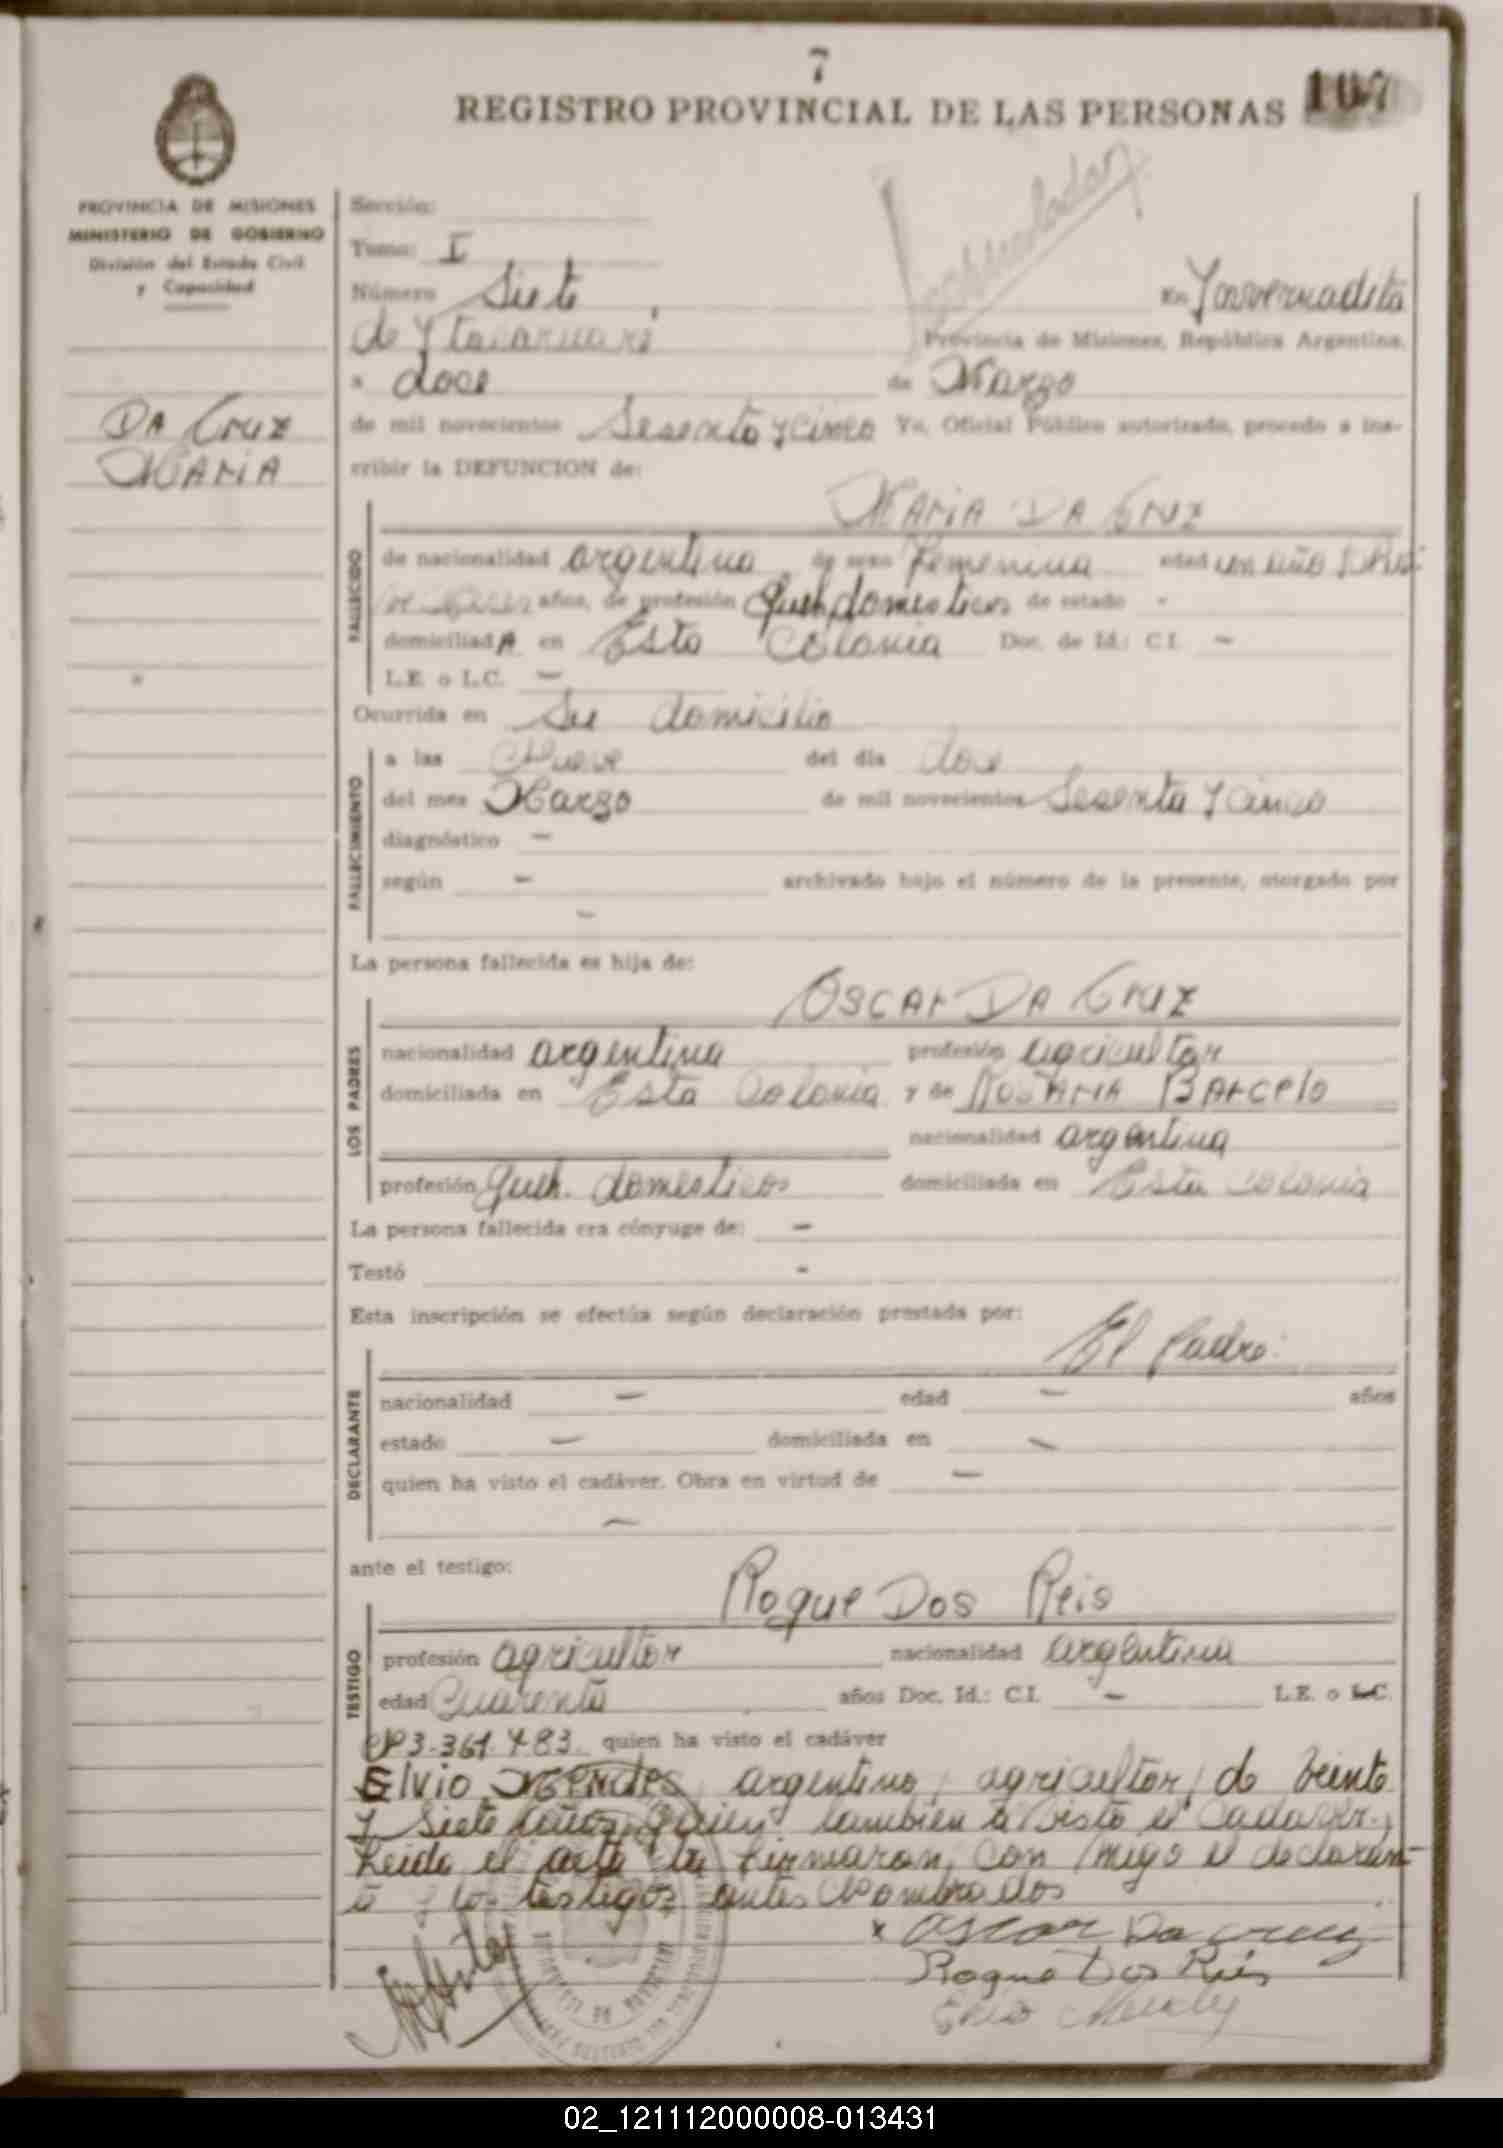 7
REGISTRO PROVINCIAL DE LAS PERSONAS 107
PROVINCIA DE MISIONES
MINISTERIO DE GOBIERNO
División del Estado Civil
y Capacidad
DA CRUZ
MARIA
Sección:
Tomo: I
Número Siete, En Ynvernadita
de Ytacaruaré Provincia de Misiones, República Argentina,
a doce de Marzo
de mil novecientos Sesenta y Cinco Yo, Oficial Público autorizado, procedo a ins-
cribir la DEFUNCION de:
MARIA DA CRUZ
FALLECIDO
de nacionalidad argentina de sexo Femenina edad un año
años, de profesión Queh. domesticos de estado -
domiciliadA en Esta Colonia Doc. de Id.: C.I. -
L.E. o L.C. -
Ocurrida en Su domicilio
FALLECIMIENTO
a las Nueve del día doce
del mes Marzo de mil novecientos Sesenta y Cinco
diagnóstico -
según - archivado bajo el número de la presente, otorgado por
-
La persona fallecida es hija de:
OSCAR DA CRUZ
LOS PADRES
nacionalidad argentina profesión agricultor
domiciliada en Esta Colonia y de BARCELO
nacionalidad argentina
profesión Queh. domesticos domiciliada en Esta Colonia
La persona fallecida era cónyuge de: -
Testó -
Esta inscripción se efectúa según declaración prestada por:
El Padre.
DECLARANTE
nacionalidad - edad - años
estado - domiciliada en -
quien ha visto el cadáver. Obra en virtud de -
-
ante el testigo:
Roque Dos Reis
TESTIGO
profesión agricultor nacionalidad argentina
edad Cuarenta años Doc. Id.: C.I. - L.E. o L.C.
Nº 3.361.483 quien ha visto el cadáver
Elvio Mendes, argentino, agricultor, de Veinte
y Siete años, quien también a Visto el Cadaver.,
Leida el acta la firmaron, Con migo el declaran-
te y los testigos antes Nombrados
x Oscar Da Cruz
Roque Dos Reis
02_121112000008-013431